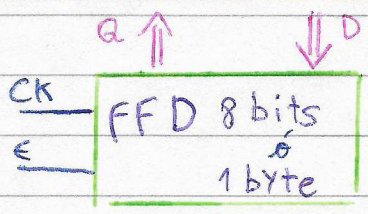 Q D
CK
FFD 8 bits
ó
E
1 byte